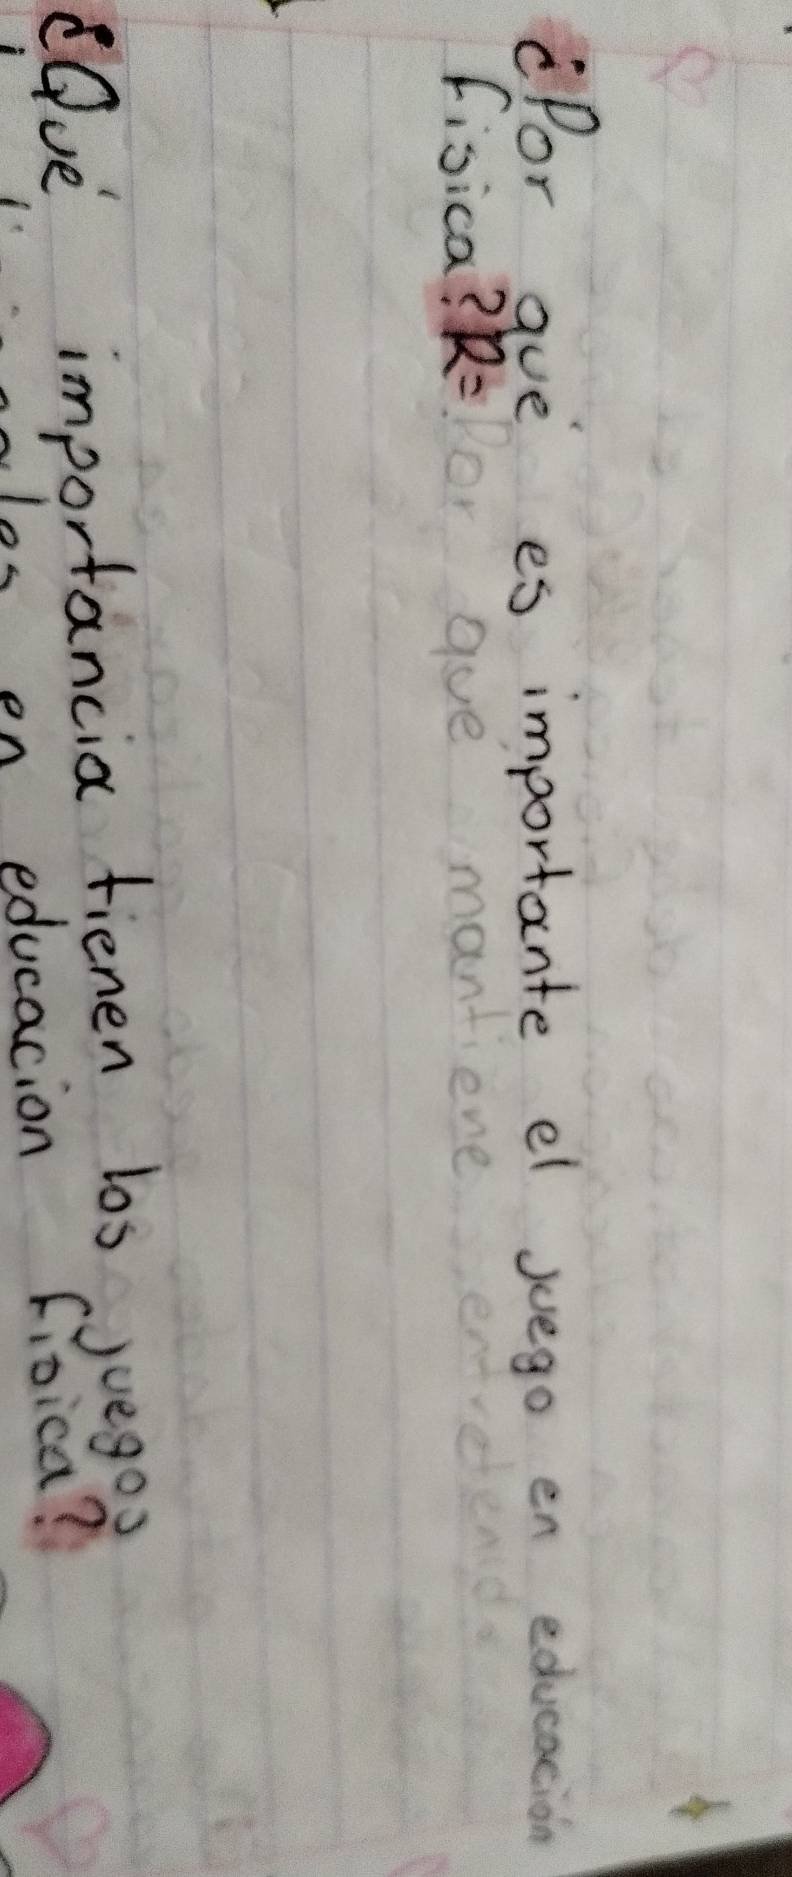 ¿Por qué es importante el juego en educación
física? R= Por que mantiene entretenid
¿Qué importancia tienen los juegos
en educacion física?